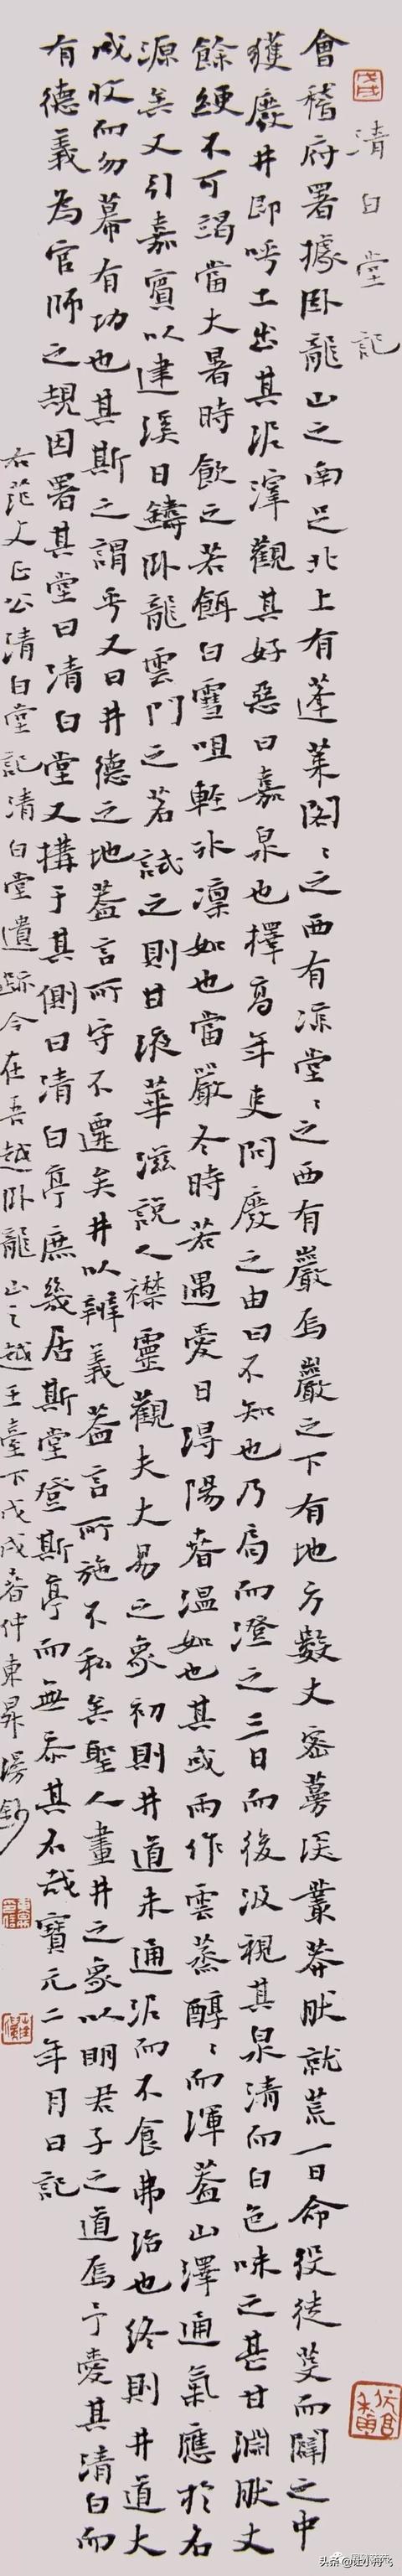 清白堂記
會稽府署據卧龍山之南足北上有蓬萊閣〻之西有涼堂〻之西有巖焉巖之下有地方數丈密蔓深叢莽肰就荒一日命役徒芟而闢之中
獲廢井即呼工出其泥滓觀其好惡曰嘉泉也擇高年吏問廢之由曰不知也乃扃而澄之三日而後汲視其泉清而白色味之甚甘淵肰丈
餘綆不可竭當大暑時飲之若餌白雪咀輕冰凜如也當嚴冬時若遇愛日得陽春溫如也其或雨作雲蒸醇〻而渾蓋山澤通氣應於名
源矣又引嘉賓以建溪日鑄卧龍雲門之茗試之則甘液華滋說人襟靈觀夫大易之象初則井道未通泥而不食弗治也終則井道大
成收而勿幕有功也其斯之謂乎又曰井德之地蓋言所守不遷矣井以辨義蓋言所施不私矣聖人畫井之象以明君子之道焉予愛其清白而
有德義為官師之規因署其堂曰清白堂又構于其側曰清白亭庶幾居斯堂登斯亭而無忝其名哉寶元二年月日記
右范文正公清白堂記清白堂遺跡今在吾越卧龍山之越王臺下戊戌春仲東昇湯鈔
戊戌
头条